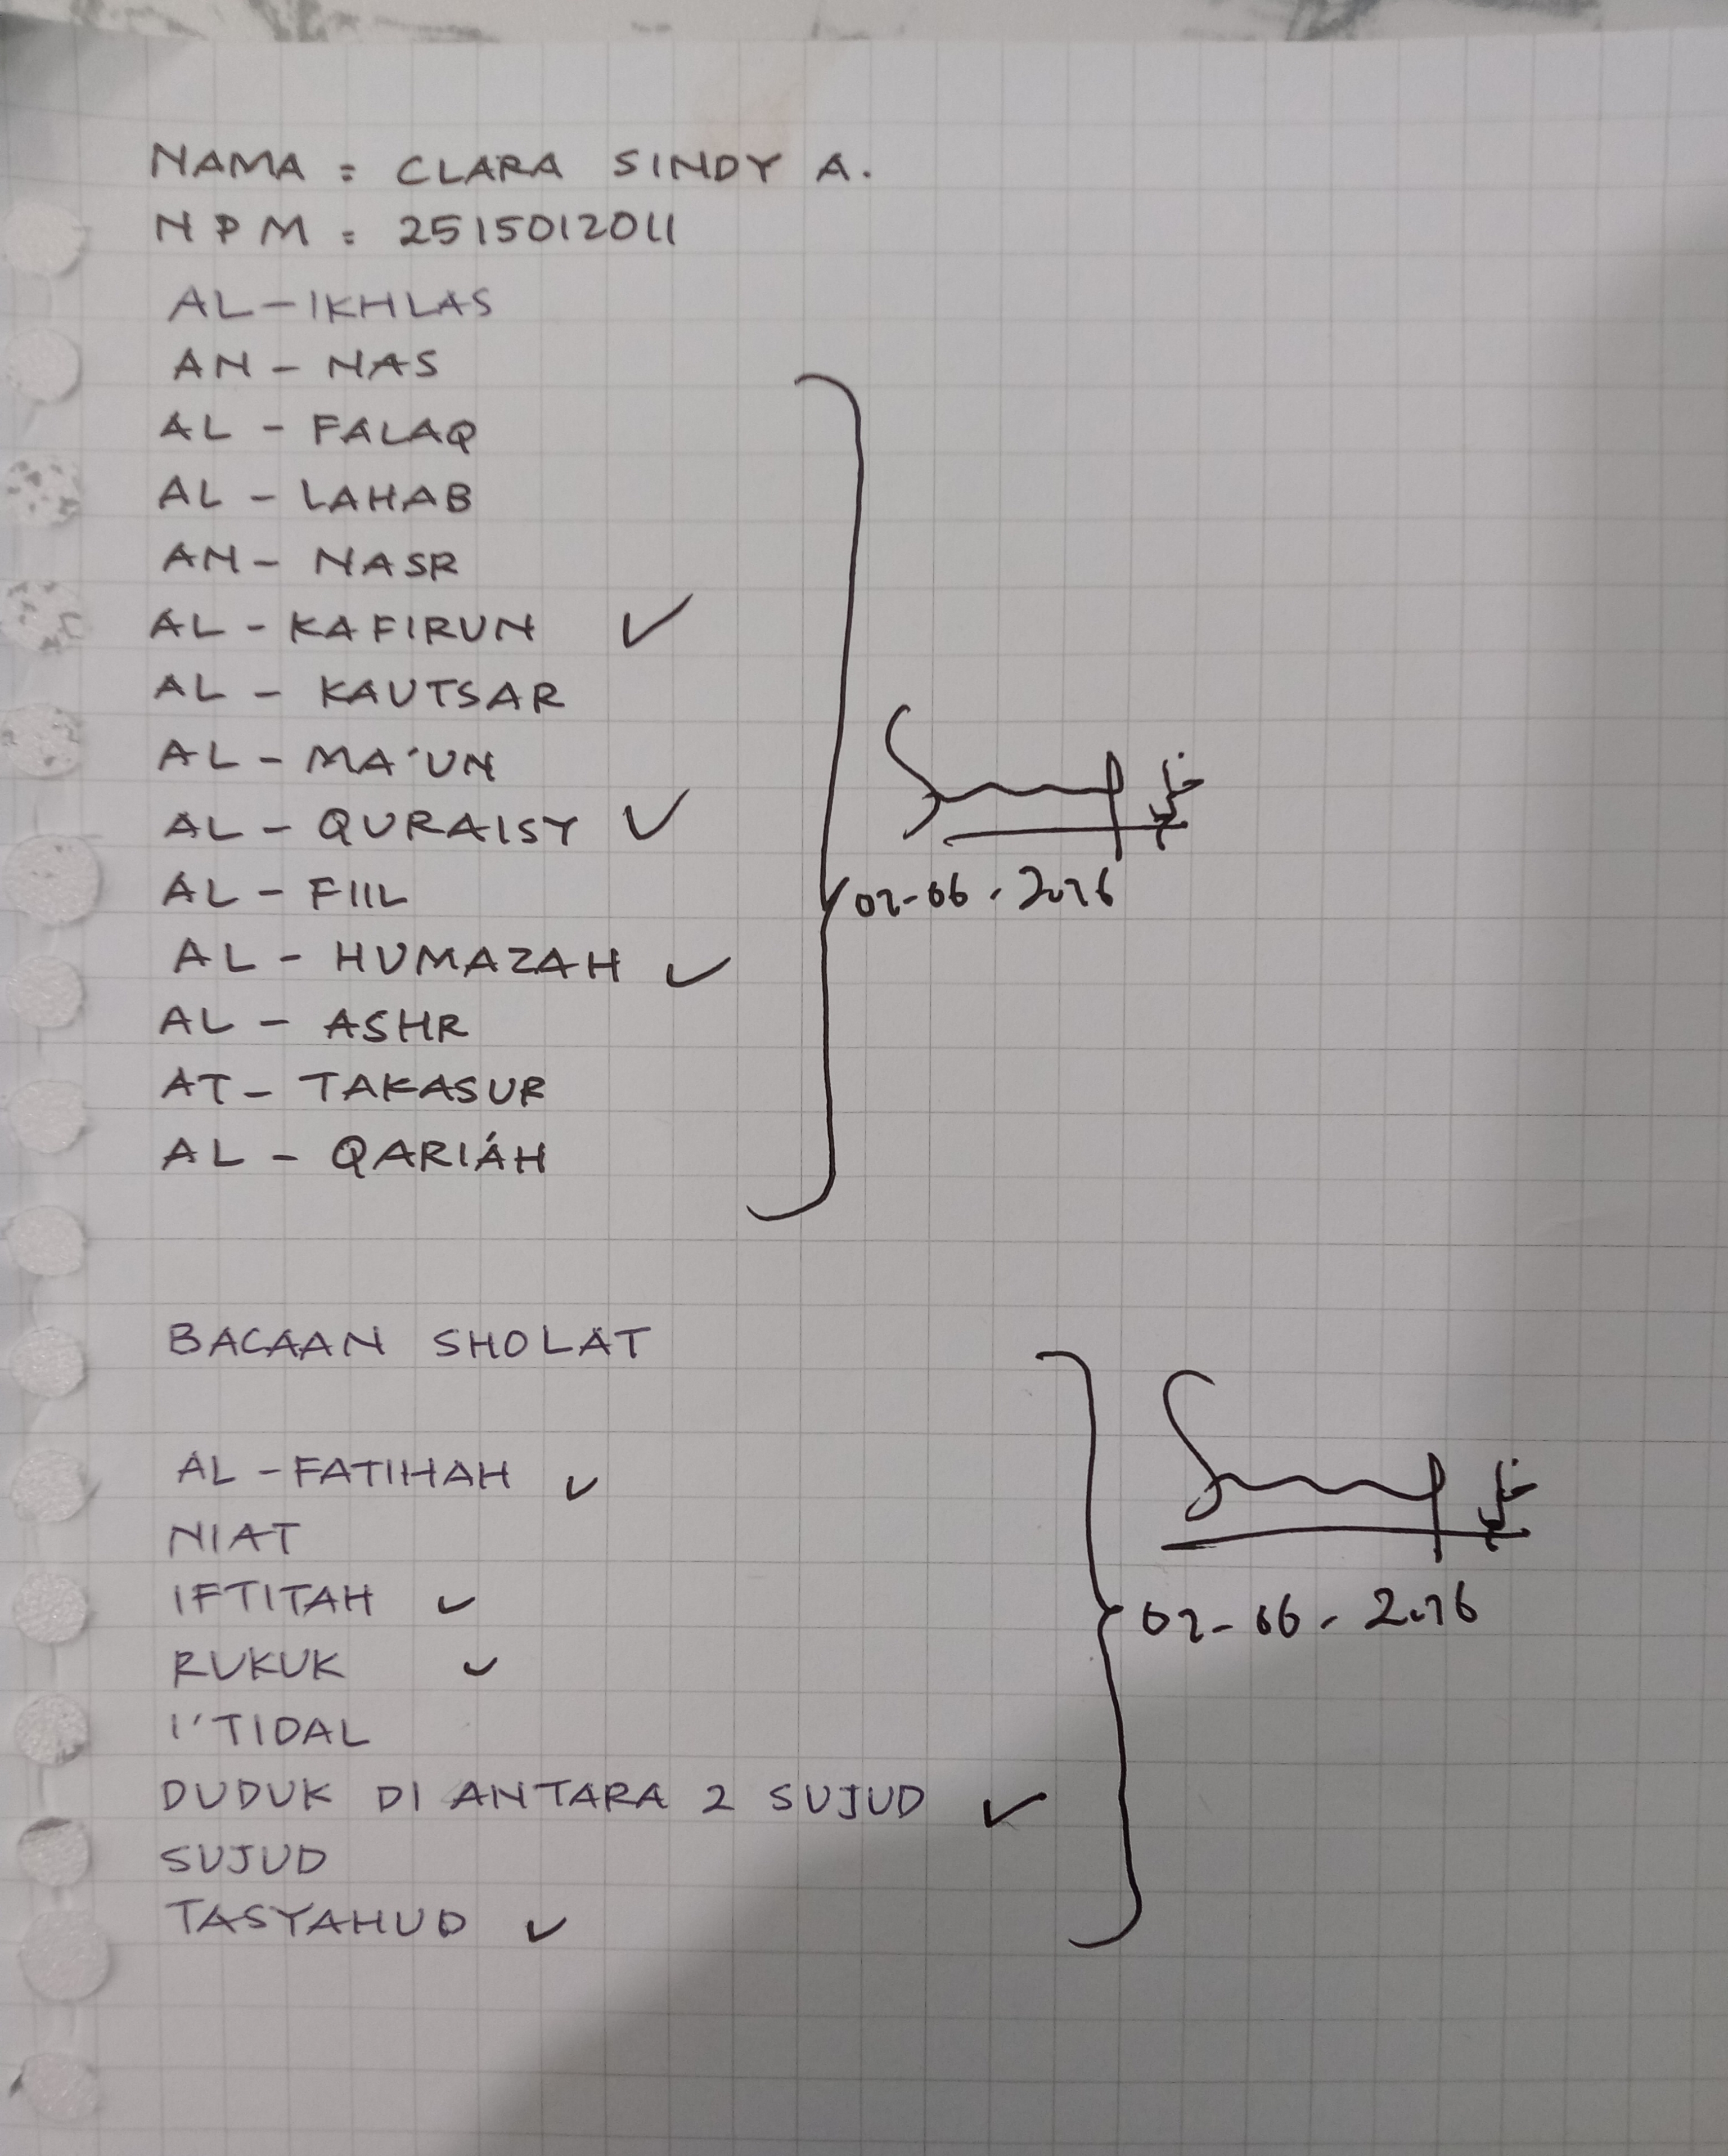 NAMA : CLARA SINDY A.
NPM : 2515012011
AL-IKHLAS
AN - NAS
AL - FALAQ
AL - LAHAB
AN - NASR
AL - KAFIRUN ✓
AL - KAUTSAR
AL - MA'UN
AL - QURAISY ✓
AL - FIIL
02-06-2026
AL - HUMAZAH ✓
AL - ASHR
AT - TAKASUR
AL - QARIÁH
BACAAN SHOLAT
AL - FATIHAH ✓
NIAT
IFTITAH ✓
02-06-2026
RUKUK ✓
I'TIDAL
DUDUK DI ANTARA 2 SUJUD ✓
SUJUD
TASYAHUD ✓